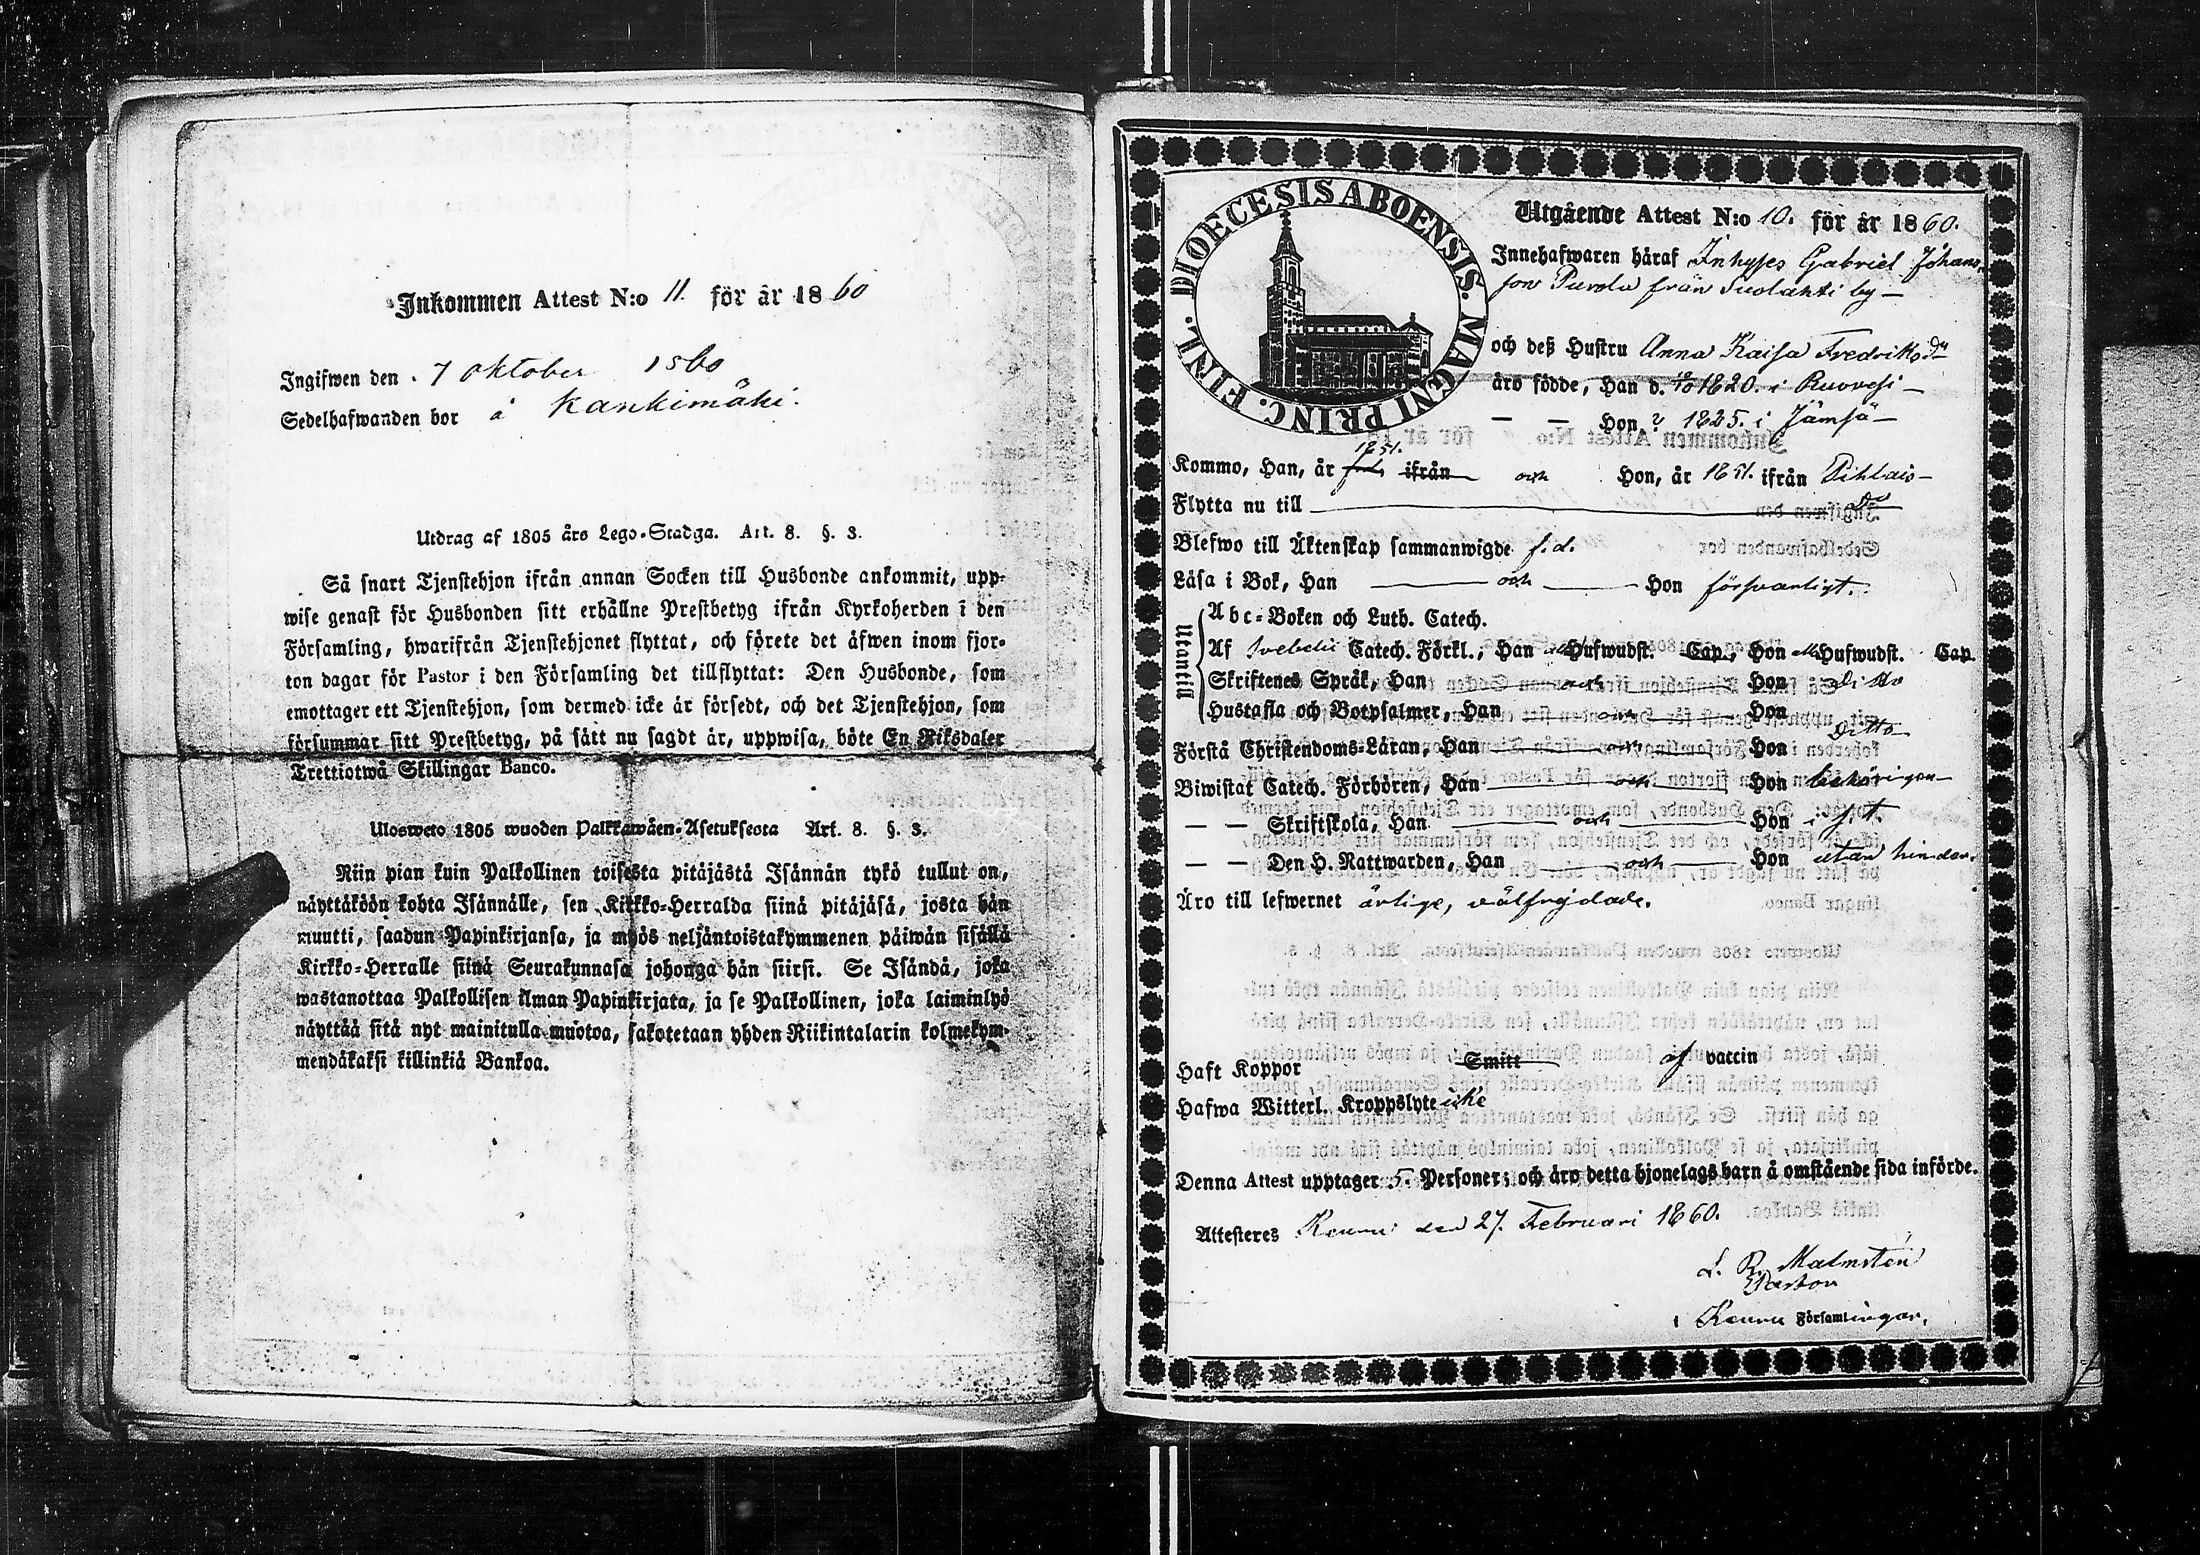 Inkommen Attest N:o 11. för år 1860
Ingifwen den 7 oktober 1860
Sedelhafwanden bor å Kankimäki.
Utdrag af 1805 års Lego-Stadga. Art. 8. §. 3.
Så snart Tjenstehjon ifrån annan Socken till Husbonde ankommit, upp-
wise genast för Husbonden sitt erhållne Prestbetyg ifrån Kyrkoherden i den
Församling, hwarifrån Tjenstehjonet flyttat, och förete det äfwen inom fjor-
ton dagar för Pastor i den Församling det tillflyttat: Den Husbonde, som
emottager ett Tjenstehjon, som dermed icke är försedt, och det Tjenstehjon, som
försummar sitt Prestbetyg, på sätt nu sagdt är, uppwisa, böte En Riksdaler
Trettiotwå Skillingar Banco.
Ulosweto 1805 wuoden Palkkawäen-Asetuksesta Art. 8. §. 3.
Niin pian kuin Palkollinen toisesta pitäjästä Isännän tykö tullut on,
näyttäköön kohta Isännälle, sen Kirkko-Herralda siinä pitäjäsä, josta hän
muutti, saadun Papinkirjansa, ja myös neljäntoistakymmenen päiwän sisällä
Kirkko-Herralle siinä Seurakunnasa johonga hän siirsi. Se Isändä, joka
wastanottaa Palkollisen ilman Papinkirjata, ja se Palkollinen, joka laiminlyö
näyttää sitä nyt mainitulla muotoa, sakotetaan yhden Riikintalarin kolmekym-
mendäkaksi killinkiä Bankoa.
DIOECESIS ABOENSIS. MAGNI PRINC. FINL.
Utgående Attest N:o 10. för år 1860.
Innehafwaren häraf Inhyses Gabriel Johans-
son Purola från Suolahti by —
och deß Hustru Anna Kaisa Fredriksdr
äro födde, Han d. 1820. i Ruovesi —
— — Hon ? 1825. i Jämsä —
1851.
Kommo, Han, år ifrån och Hon, år 1851. ifrån Pihlais—
Flytta nu till
Blefwo till Äktenskap sammanwigde s.d.
Läsa i Bok, Han — och — Hon försvarligt.
Utantill
Abc-Boken och Luth. Catech.
Af Svebelii Catech. Förkl., Han all Hufwudst. Cap., Hon all Hufwudst. Cap.
Skriftenes Språk, Han — och — Hon Ditto
Hustafla och Botpsalmer, Han — och — Hon
Ditto
Förstå Christendoms-Läran, Han — och — Hon
Biwistat Catech. Förhören, Han — och — Hon behörigen—
— — Skriftskola, Han — och — Hon i s.t.
— — Den H. Nattwarden, Han — och — Hon utan hinder.
Äro till lefwernet ärlige, välfrejdade.
Haft Koppor Smitt af vaccin
Hafwa Witterl. Kroppslyte icke
Denna Attest upptager 5. Personer; och äro detta hjonelags barn å omstående sida införde.
Attesteras Keuru den 27. Februari 1860.
L. R. Malmstén
Pastor
i Keuru Församlingar.